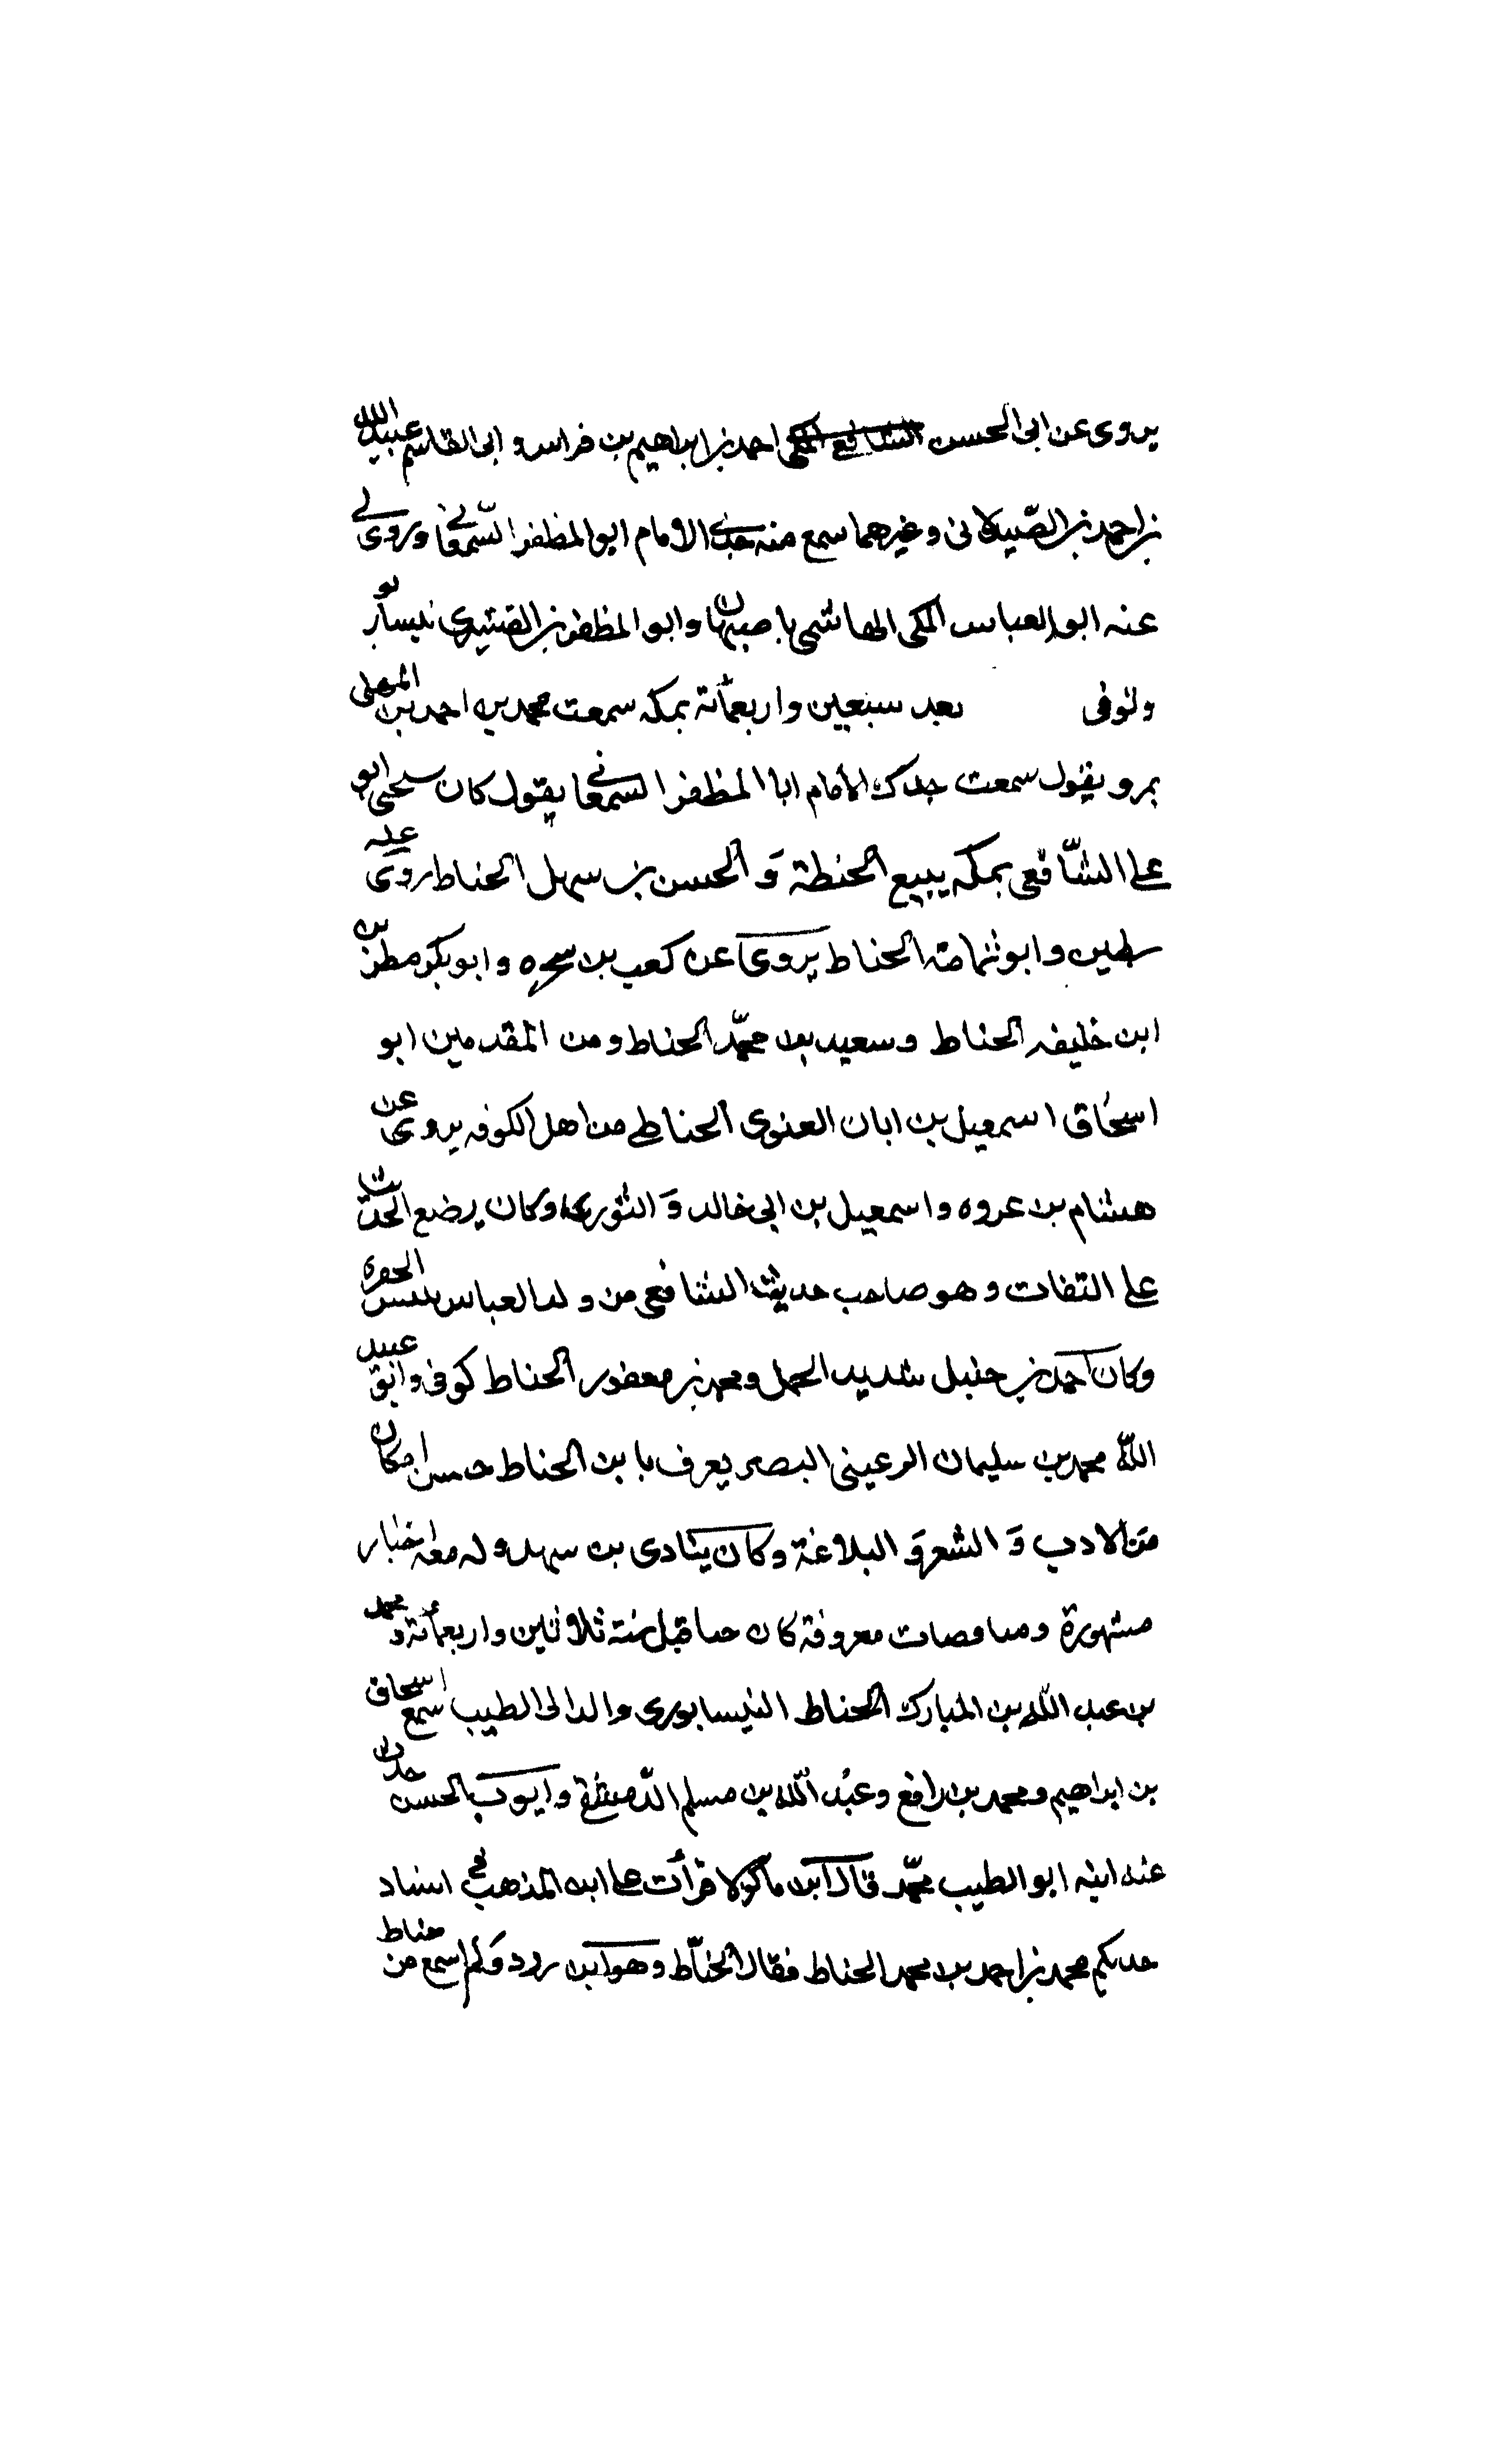 يروى عن ابى الحسن الشافعى المكى احمد بن ابراهيم بن فراس و ابى القاسم عبيد الله
بن احمد بن الصّيدلانى وغيرهما سمع منه جدى الامام ابو المظفر السّمعانى وروى لى
عنه ابو العباس المكى الهاشمى باصبهان وابو المظفر بن القشيرى نيسابو
وتوفى بعد سبعين واربعمأته بمكه سمعت محمد بن احمد بن المهلى
بمرو يقول سمعت جدك الامام ابا المظفر السمعانى يقول كان يحيى ابو
على الشّافعى بمكه يبيع الحنطة وَ الحسن بن سهل الحناط روى عنه
مطين وابو ثمامة الحناط يروى عن كعب بن عجره وابو بكر مطر بن
ابن خليفه الحناط وسعيد بن محمّد الحناط ومن المقدمين ابو
اسحاق اسمعيل بن ابان العنوى الحناطى من اهل الكوفه يروى عن
هشام بن عروه واسمعيل بن ابى خالد وَ الثورى وكان يضع الحديث
على الثقات وهو صاحب حديث الشافعى من ولد العباس يلبس الخضره
وكان احمد بن حنبل شديد الحمل ومحمد بن الحناط كوفى عبيد
الله محمد بن سليمان الرعينى البصر يعرف بابن الحناط حسن امكان
من الادب وَ الشعر وَ البلاغة وكان ينادى بن سهل وله معه اخبار
مشهورة ومناقصات معروفة كان حيا قبل سنة ثلاثين واربعمأتة ومحمد
بن عبد الله بن المبارك الحناط النيسابورى والد ابى الطيب سمع اسحاق
بن ابراهيم ومحمد بن رافع وعبد الله بن مسلم الدمشقى وايوب الحسن حدث
عنه ابنه ابو الطيب محمّد قال ابن ماكولا قرأت على ابن المذهب فى اسناد
حدثكم محمد بن احمد بن محمد الحناط فقال الحنّاط وهو ابن رود ولم اسمع من حناط